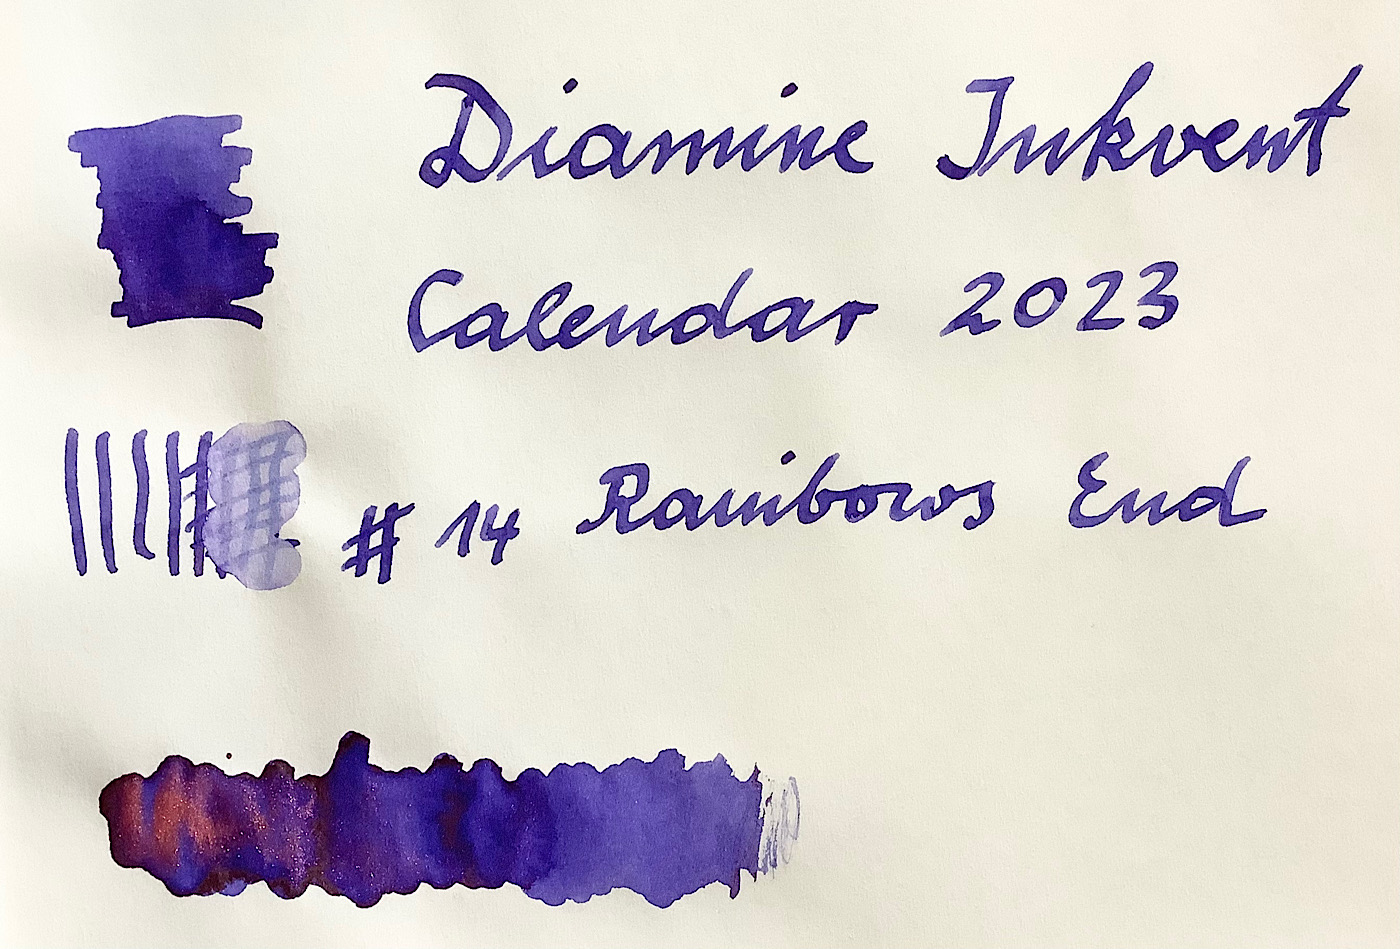 Diamine Inkvent
Calendar 2023
# 14 Rainbows End